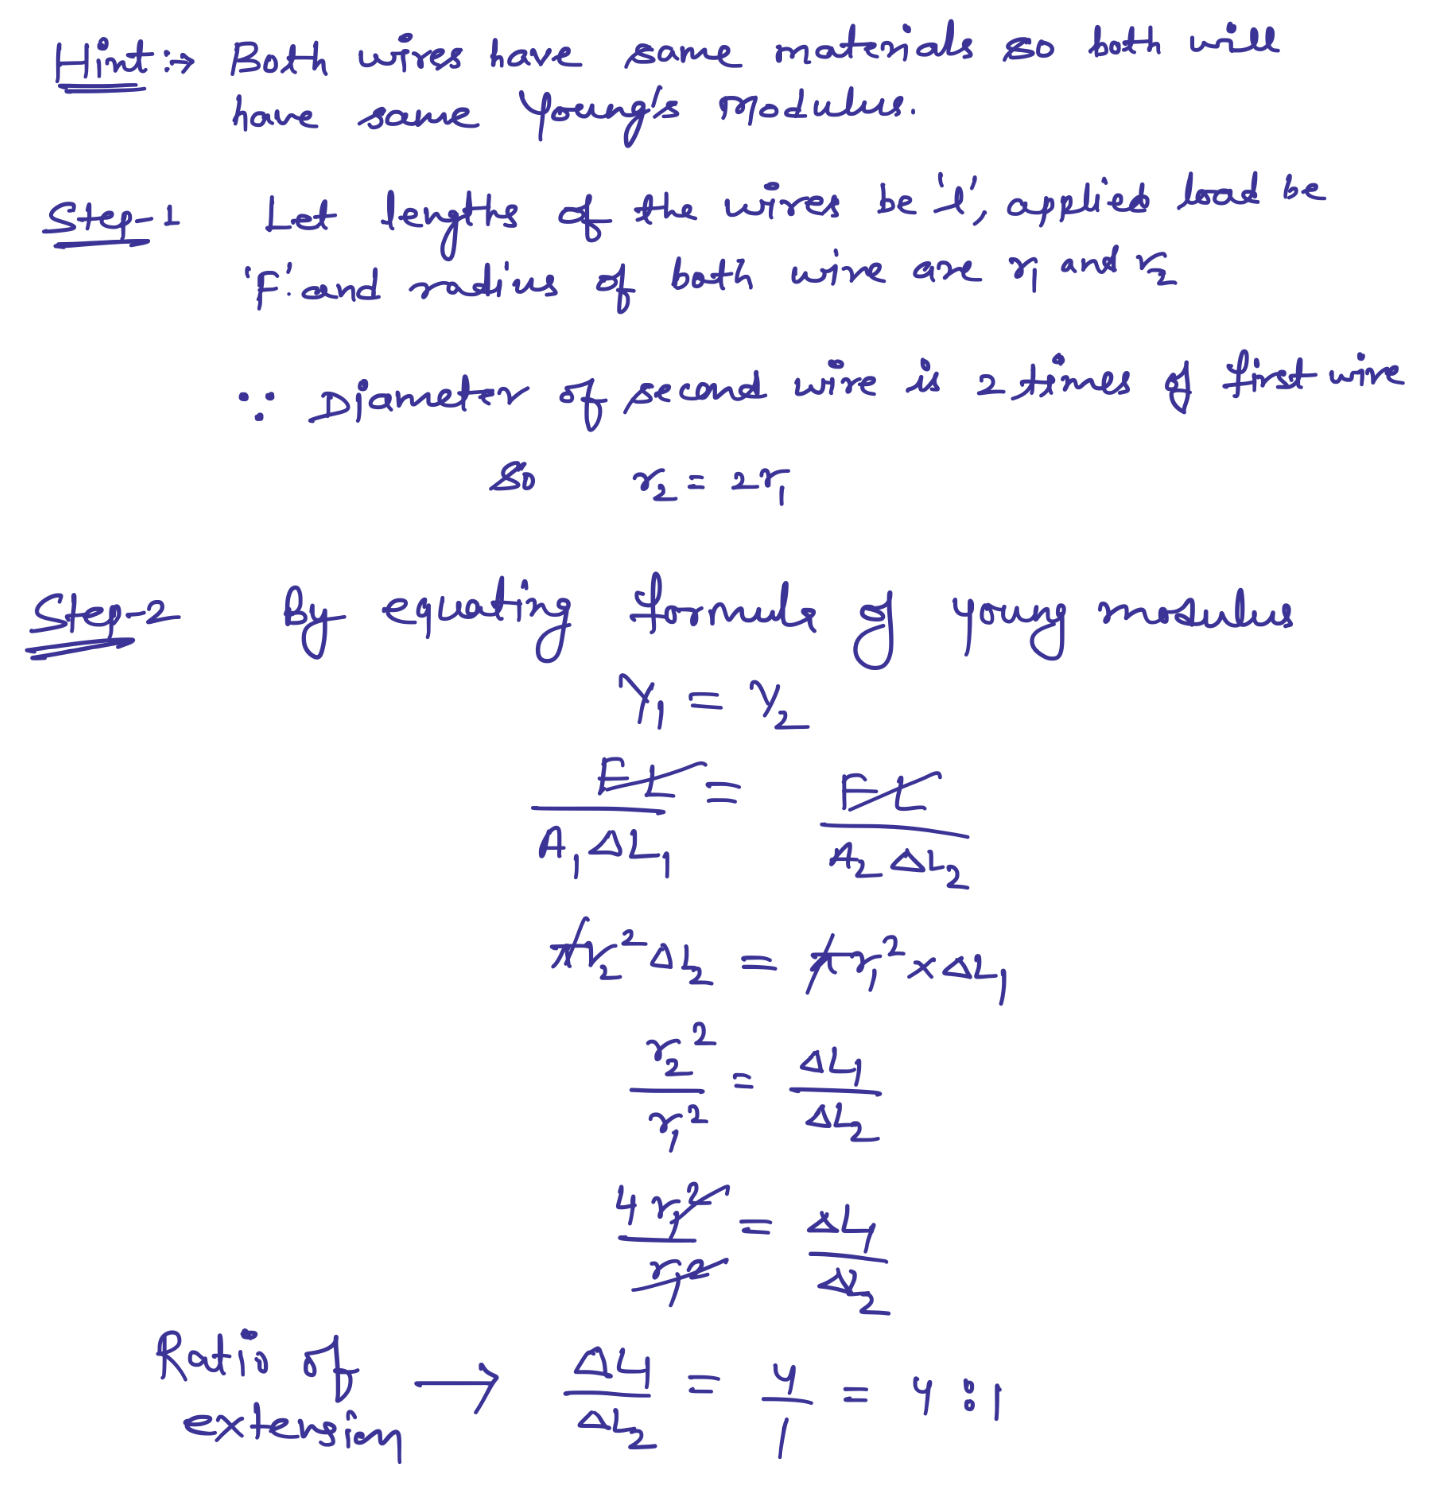 Hint :→ Both wires have same materials so both will
have same Young's Modulus.
Step-1 Let lengths of the wires be 'l', applied load be
'F' and radius of both wire are r₁ and r₂
∵ Diameter of second wire is 2 times of first wire
so r₂ = 2r₁
Step-2 By equating formula of young modulus
Y₁ = Y₂
FL/A₁ΔL₁ = FL/A₂ΔL₂
πr₂²ΔL₂ = πr₁² × ΔL₁
r₂²/r₁² = ΔL₁/ΔL₂
4r₁²/r₁² = ΔL₁/ΔL₂
Ratio of extension → ΔL₁/ΔL₂ = 4/1 = 4 : 1